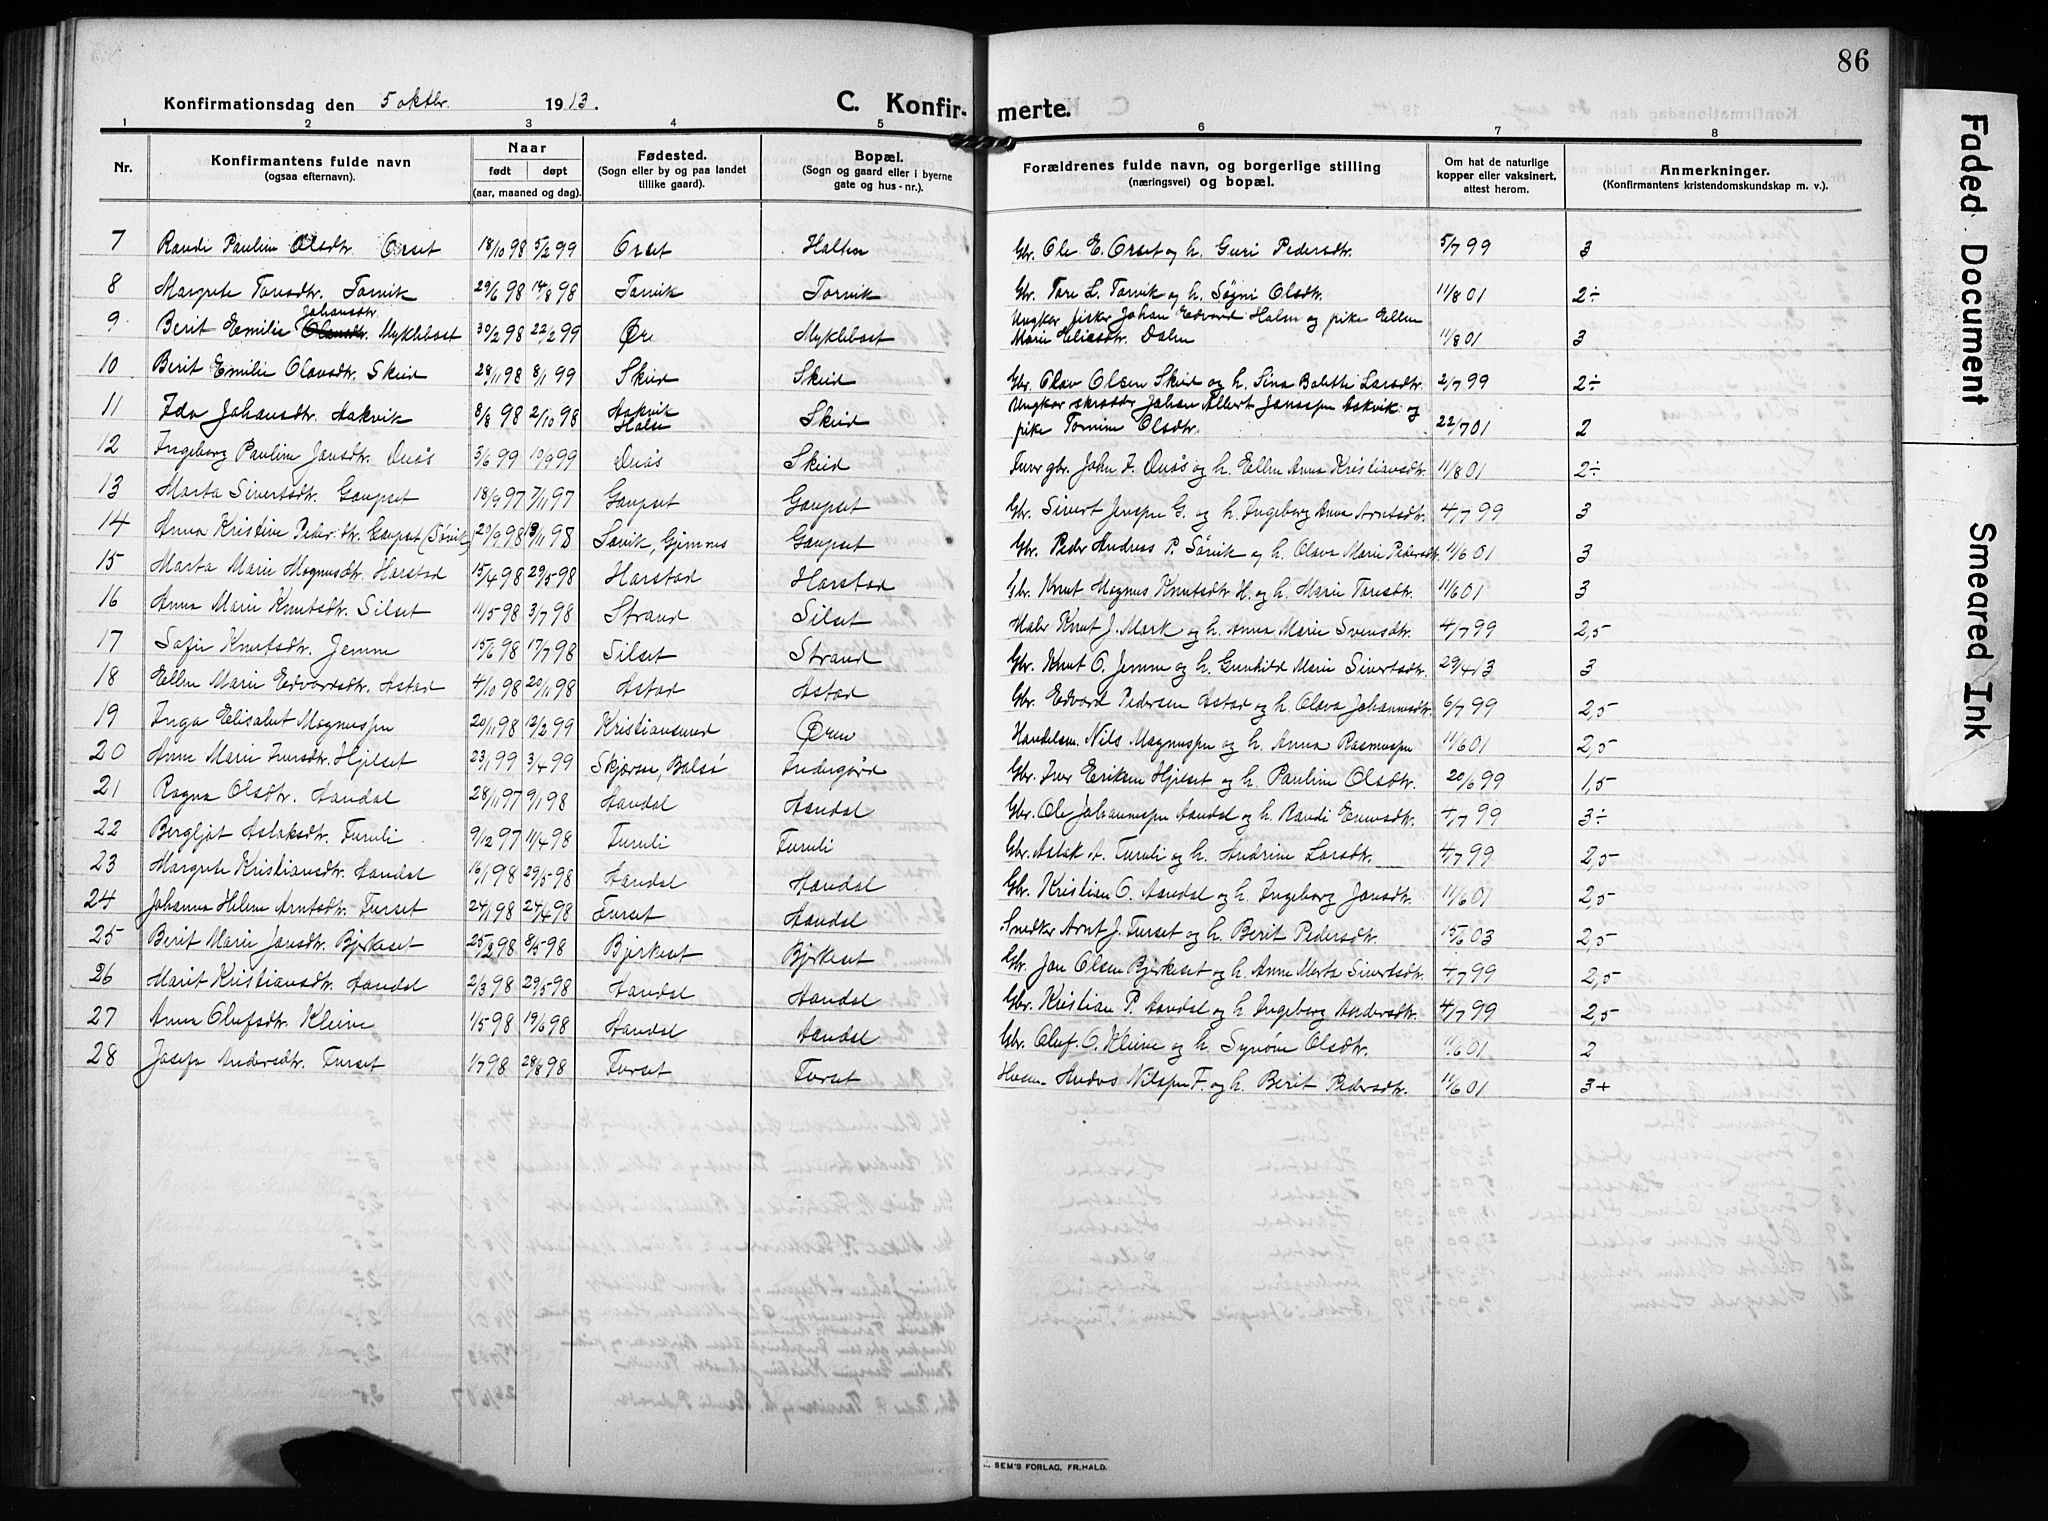 86
Konfirmationsdag den 5 oktbr. 1913.
C. Konfirmerte.
1 2 3 4 5 6 7 8
Nr.
Konfirmantens fulde navn
(ogsaa efternavn).
Naar
født døpt
(aar, maaned og dag).
Fødested.
(Sogn eller by og paa landet
tillike gaard).
Bopæl.
(Sogn og gaard eller i byerne
gate og hus-nr.).
Forældrenes fulde navn, og borgerlige stilling
(næringsvei) og bopæl.
Om hat de naturlige
kopper eller vaksinert,
attest herom.
Anmerkninger.
(Konfirmantens kristendomskundskap m. v.).
7 Randi Pauline Olsdtr. Orset 18/10 98 5/2 99 Orset Halten Gbr. Ole E. Orset og h. Guri Pedersdtr. 5/7 99 3
8 Margrete Toresdtr. Torvik 29/6 98 14/8 98 Torvik Torvik Gbr. Tore L. Torvik og h. Søgni Olsdtr. 11/8 01 2÷
9 Berit Emilie Johansdtr. Myklebost 30/2 98 22/2 99 Øre Myklebost Ungkar fisker Johan Edvard Halsen og pike Ellen
Marie Eliasdtr. Dalen 11/8 01 3
10 Berit Emilie Olavsdtr. Skeid 28/11 98 8/1 99 Skeid Skeid Gbr. Olav Olsen Skeid og h. Sina Bolette Larsdtr. 2/7 99 2÷
11 Ida Johansdtr. Aakvik 8/8 98 2/10 98 Aakvik Halse Skeid Ungkar skrædder Johan Albert Jonsspn Aakvik og
pike Tomine Olsdtr. 22/7 01 2
12 Ingeborg Pauline Jonsdtr. Duås 3/6 99 10/9 99 Duås Skeid gbr. John J. Duås og h. Ellen Anna Kristiansdtr. 11/8 01 2÷
13 Marta Sivertsdtr. Gaupset 18/9 97 7/11 97 Gaupset Gaupset Gbr. Sivert Jensspn G. og h. Ingeborg Anna Arntsdtr. 4/7 99 3
14 Anna Kristine Pedersdtr. Gaupset (Sørvik) 20/9 98 13/11 98 Sørvik, Gjemnes Gaupset Gbr. Peder Andreas P. Sørvik og h. Olava Marie Pedersdtr. 11/6 01 3
15 Marta Marie Magnusdtr. Harstad 15/4 98 29/5 98 Harstad Harstad Gbr. Knut Magnus Knutsdtr. H. og h. Marie Toresdtr. 11/6 01 3
16 Anna Marie Knutsdtr. Silset 11/5 98 3/7 98 Strand Silset Maler Knut J. Mork og h. Anna Marie Svensdtr. 4/7 99 2,5
17 Sofie Knutsdtr. Jemne 15/6 98 17/7 98 Silset Strand Gbr. Knut O. Jemne og h. Gunhild Marie Sivertsdtr. 29/4 13 3
18 Ellen Marie Edvardsdtr. Astad 4/10 98 20/11 98 Astad Astad Gbr. Edvard Pedersen Astad og h. Olava Johannesdtr. 6/7 99 2,5
19 Inga Elisabet Magnusspn 20/11 98 12/2 99 Kristiansund Øren Handelsm. Nils Magnusspn og h. Anna Rasmusspn 11/6 01 2,5
20 Anne Marie Iversdtr. Hjelset 23/1 99 3/4 99 Skjørsæ, Bolsø Indergård Gbr. Iver Eriksen Hjelset og h. Pauline Olsdtr. 20/6 99 1,5
21 Ragna Olsdtr. Aandal 28/11 97 9/1 98 Aandal Aandal Gbr. Ole Johannesspn Aandal og h. Randi Evensdtr. 4/7 99 3÷
22 Bergljot Aslaksdtr. Furuli 9/12 97 11/4 98 Furuli Furuli Gbr. Aslak A. Furuli og h. Andrine Larsdtr. 4/7 99 2,5
23 Margrete Kristiansdtr. Aandal 16/1 98 29/5 98 Aandal Aandal Gbr. Kristian O. Aandal og h. Ingeborg Jonsdtr. 11/6 01 2,5
24 Johanna Helene Arntsdtr. Furset 24/1 98 24/4 98 Furset Aandal Snedker Arnt J. Furset og h. Berit Pedersdtr. 15/6 03 2,5
25 Berit Marie Jonsdtr. Bjerkeset 25/2 98 8/5 98 Bjerkeset Bjerkeset Gbr. Jon Olsen Bjerkeset og h. Anne Marta Sivertsdtr. 4/7 99 2,5
26 Marit Kristiansdtr. Aandal 2/3 98 29/5 98 Aandal Aandal Gbr. Kristian P. Aandal og h. Ingeborg Andersdtr. 4/7 99 2,5
27 Anna Olufsdtr. Kleive 1/5 98 19/6 98 Aandal Aandal Gbr. Oluf O. Kleive og h. Synøve Olsdtr. 11/6 01 2
28 Josefa Andersdtr. Furset 1/7 98 28/8 98 Furset Furset Husm. Anders Nilsspn F. og h. Berit Pedersdtr. 11/6 01 3+
SEM'S FORLAG, FR.HALD.
Faded Document
Smeared Ink